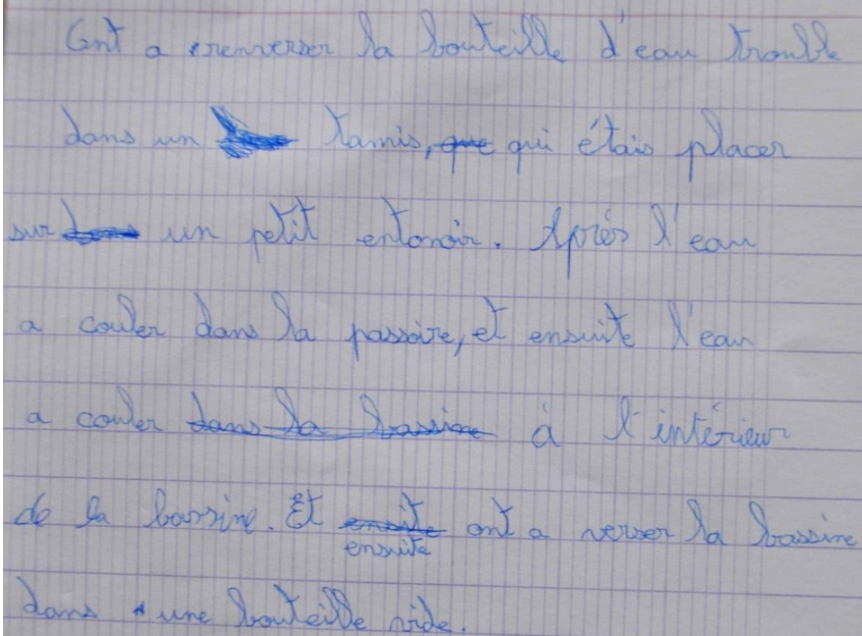 Ont a renverser la bouteille d'eau trouble
dans un tamis, que qui étais placer
sur dans un petit entonoir. Après l'eau
a couler dans la passoire, et ensuite l'eau
a couler dans la bassine à l'intérieur
de la bassine. Et ensuite ont a verser la bassine
ensuite
dans une bouteille vide.